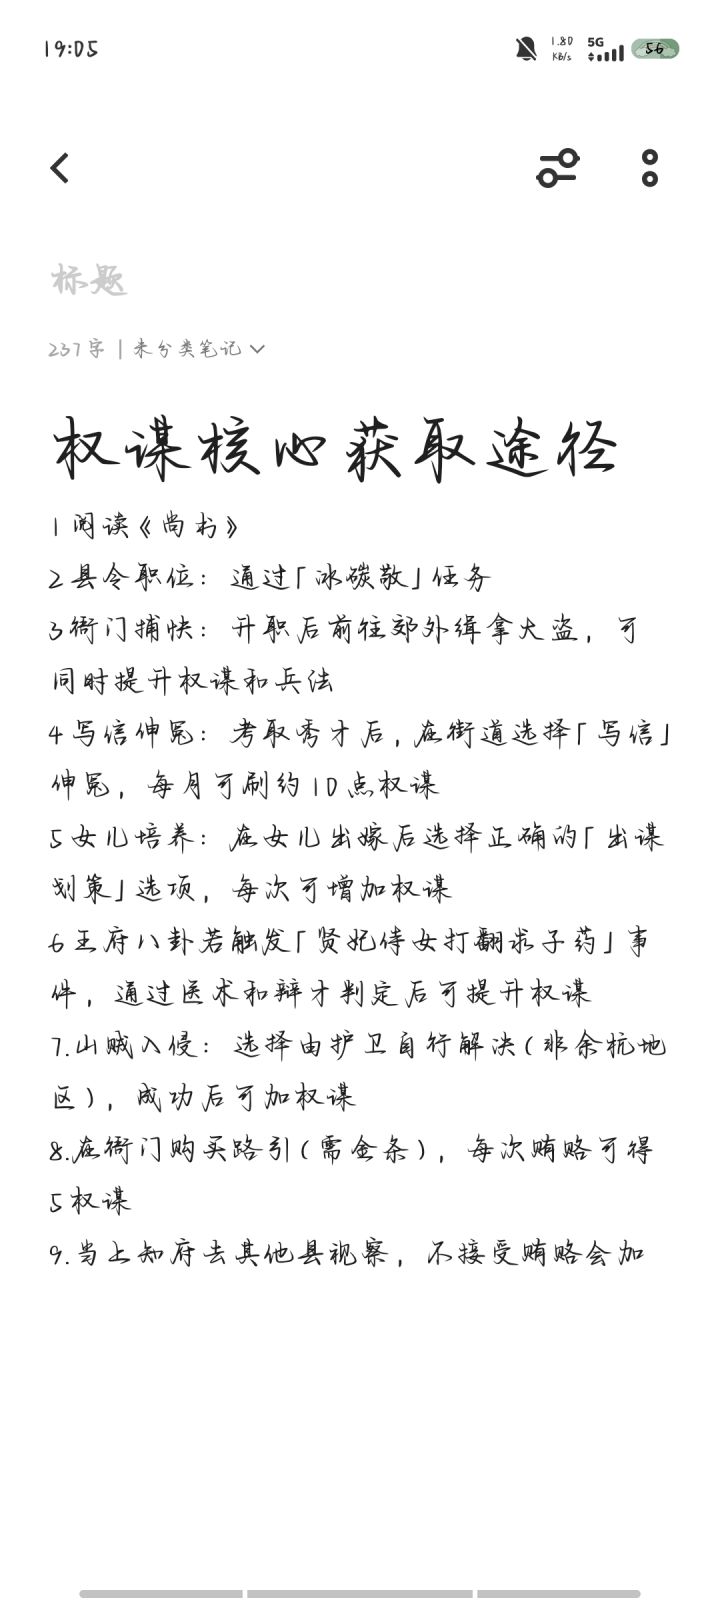 19:05
1.80 KB/s 5G 56
标题
237字 | 未分类笔记
权谋核心获取途径
1阅读《尚书》
2县令职位：通过「冰碳敬」任务
3衙门捕快：升职后前往郊外缉拿大盗，可
同时提升权谋和兵法
4写信伸冤：考取秀才后，在街道选择「写信」
伸冤，每月可刷约10点权谋
5女儿培养：在女儿出嫁后选择正确的「出谋
划策」选项，每次可增加权谋
6王府八卦若触发「贤妃侍女打翻求子药」事
件，通过医术和辩才判定后可提升权谋
7.山贼入侵：选择由护卫自行解决(非余杭地
区)，成功后可加权谋
8.在衙门购买路引(需金条)，每次贿赂可得
5权谋
9.当上知府去其他县视察，不接受贿赂会加